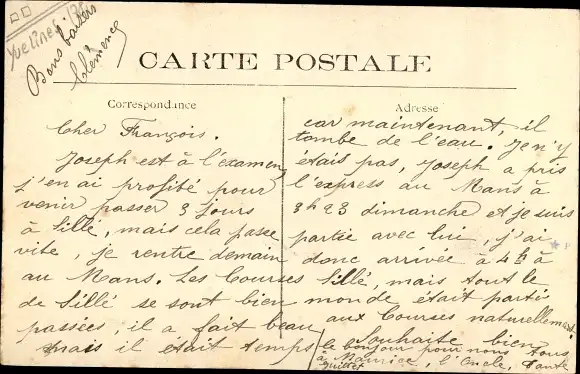 Yvelines
Bons baisers
Clémence
CARTE POSTALE
Correspondance
Cher François.
Joseph est à l'examen,
j'en ai profité pour
venir passer 3 jours
à Sillé, mais cela passe
vite, je rentre demain
au Mans. Les Courses
de Sillé se sont bien
passées, il a fait beau
mais il était temps
Adresse
car maintenant, il
tombe de l'eau. Je n'y
étais pas, Joseph a pris
l'express au Mans à
3h 23 dimanche et je suis
partie avec lui, j'ai
donc arrivée à 4h à
Sillé, mais tout le
monde était parti
aux Courses naturellement.
Souhaite bien
le bonjour pour nous tous,
à Maurice, l'Oncle, Tante
Juillet